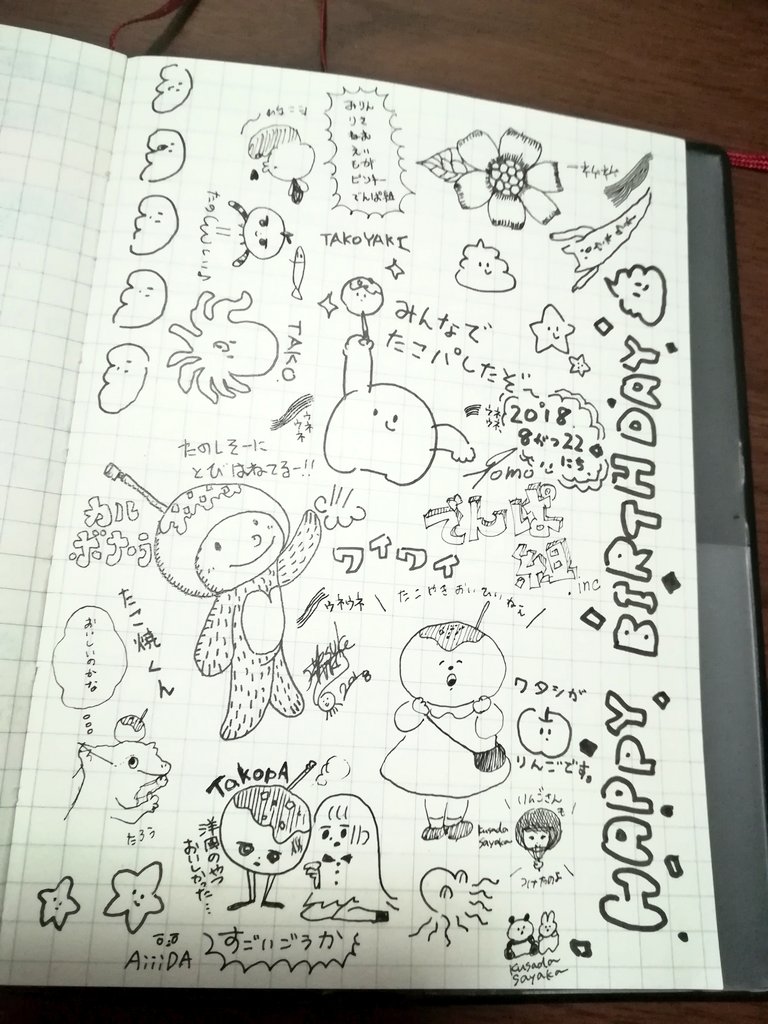 みりん
りさ
ねむ
えい
もが
ピンキー
でんぱ組
TAKOYAKI
たのしい♪
TAKO
みんなで
たこパしたぞ
ウネウネ
2018
8がつ22
にち
ウネウネ
たのしそーに
とびはねてるー!!
カル
ボナーラ
でんぱ
組
.inc
ワイワイ
ウネウネ
たこやきおいひいねぇ
たこ焼くん
おいしいのかな
2018
ワタシが
りんごです。
TakopA
洋風のやつ
おいしかった…
たろう
りんごさん
も
kusada
sayaka
AiiiDA
すごいごうか
kusada
sayaka
HAPPY BIRTH DAY